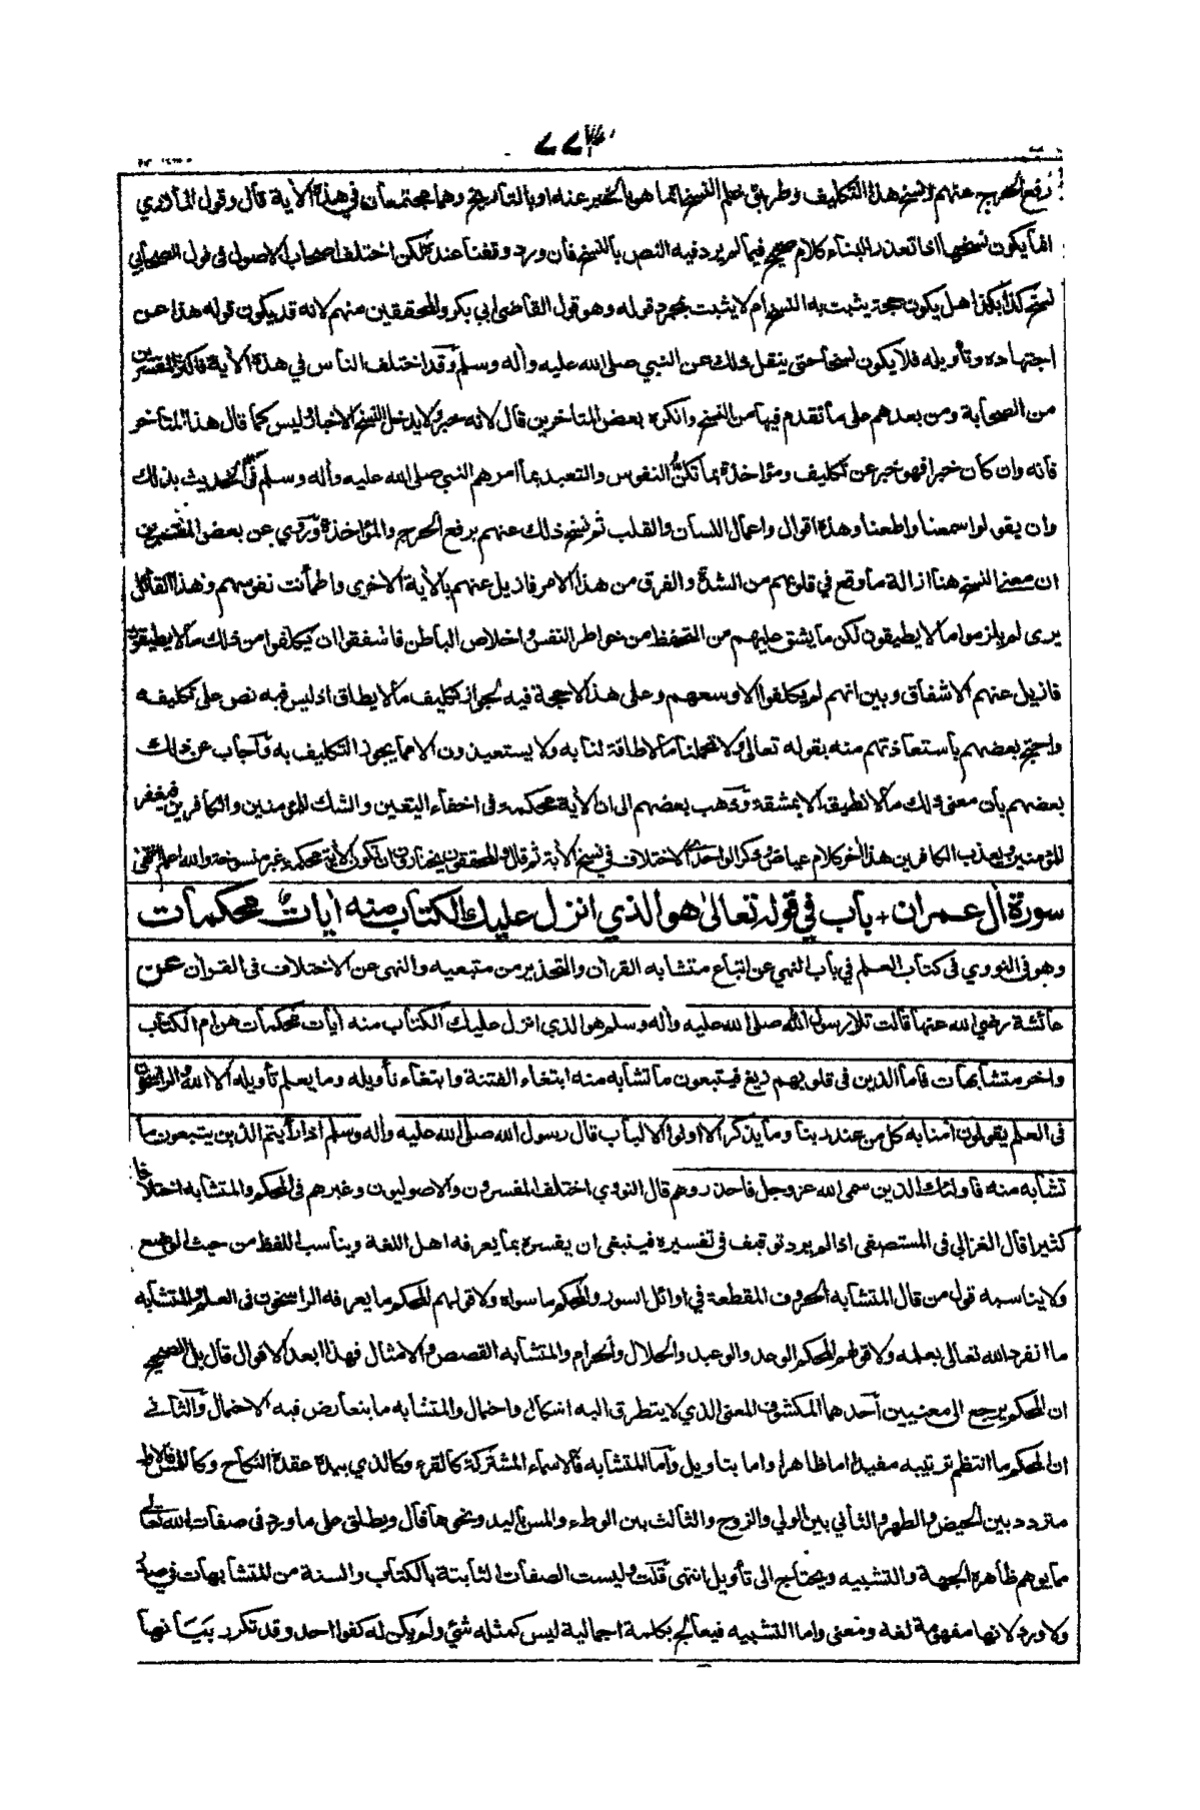 ٧٧٣
رفع الحرج عنهم ونسخ هذا التكليف وطريق علم النسخ انما هو بالخبر عنه او بالتاريخ وهما مجتمعان في هذه الأية قال وقول المازري
انما يكون نسخها اذا تعذر البناء كلام صحيح فيما لم يرد فيه النص بالنسخ فان ورد وقفنا عنده لكن اختلف اصحاب الاصول في قول الصحابي
نسخ كذا بكذا هل يكون حجة يثبت به النسخ ام لا يثبت بمجرد قوله وهو قول القاضي ابي بكر والمحققين منهم لانه قد يكون قوله هذا عن
اجتهاده وتأويله فلا يكون نسخا حتى ينقل ذلك عن النبي صلى الله عليه وأله وسلم وقد اختلف الناس في هذه الأية فاكثر المفسرين
من الصحابة ومن بعدهم على ما تقدم فيها من النسخ وانكره بعض المتأخرين قال لانه خبر ولا يدخل النسخ الاخبار وليس كما قال هذا المتأخر
فانه وان كان خبرا فهو خبر عن تكليف ومؤاخذة بما تكن النفوس والتعبد بما امرهم النبي صلى الله عليه وأله وسلم في الحديث بذلك
وان يقولوا سمعنا واطعنا وهذه اقوال واعمال اللسان والقلب ثم نسخ ذلك عنهم برفع الحرج والمؤاخذة وروي عن بعض المفسرين
ان معنى النسخ هنا ازالة ما وقع في قلوبهم من الشدة والفرق من هذا الامر فازيل عنهم بالأية الاخرى واطمأنت نفوسهم وهذا القائل
يرى لم يلزموا ما لا يطيقون لكن ما يشق عليهم من التحفظ من خواطر النفس واخلاص الباطن فاشفقوا ان يكلفوا من ذلك ما لا يطيقون
فازيل عنهم الاشفاق وبين انهم لم يكلفوا الا وسعهم وعلى هذا لا حجة فيه لجواز تكليف ما لا يطاق اذ ليس فيه نص على تكليفه
واحتج بعضهم باستعاذتهم منه بقوله تعالى ولا تحملنا ما لا طاقة لنا به ولا يستعيذون الا مما يجوز التكليف به وأجاب عن ذلك
بعضهم بأن معنى ذلك ما لا نطيقه الا بمشقة وذهب بعضهم الى ان الأية محكمة في اخفاء اليقين والشك للمؤمنين والكافرين فيغفر
للمؤمنين ويعذب الكافرين هذا أخر كلام عياض وذكر الواحدي الاختلاف في نسخ الأية ثم قال والمحققون يختارون ان تكون الأية محكمة غير منسوخة والله اعلم انتهى
سورة أل عمران + باب في قوله تعالىٰ هو الذي انزل عليك الكتاب منه أيات محكمات
وهو في النووي في كتاب العلم في باب النهي عن اتباع متشابه القرأن والتحذير من متبعيه والنهى عن الاختلاف في القرأن عن
عائشة رضي الله عنها قالت تلا رسول الله صلى الله عليه وأله وسلم هو الذي انزل عليك الكتاب منه أيات محكمات هن ام الكتاب
واخر متشابهات فاما الذين في قلوبهم زيغ فيتبعون ما تشابه منه ابتغاء الفتنة وابتغاء تأويله وما يعلم تأويله الا الله والراسخون
في العلم يقولون أمنا به كل من عند ربنا وما يذكر الا اولوا الالباب قال رسول الله صلى الله عليه وأله وسلم اذا رأيتم الذين يتبعون ما
تشابه منه فاولئك الذين سمى الله عز وجل فاحذروهم قال النووي اختلف المفسرون والاصوليون وغيرهم في المحكم والمتشابه اختلافا
كثيرا قال الغزالي في المستصفى اذا لم يرد توقيف في تفسيره فينبغي ان يفسره بما يعرفه اهل اللغة ويناسب اللفظ من حيث الوضع
ولا يناسبه قول من قال المتشابه الحروف المقطعة في اوائل السور والمحكم ما سواه ولا قولهم المحكم ما يعرفه الراسخون في العلم والمتشابه
ما انفرد الله تعالى بعلمه ولا قولهم المحكم الوعد والوعيد والحلال والحرام والمتشابه القصص والامثال فهذا ابعد الاقوال قال بل الصحيح
ان المحكم يرجع الى معنيين أحدهما المكشوف المعنى الذي لا يتطرق اليه اشكال واحتمال والمتشابه ما يتعارض فيه الاحتمال والثاني
ان المحكم ما انتظم ترتيبه مفيدا اما ظاهرا واما بتأويل وأما المتشابه فالاسماء المشتركة كالقرء وكالذي بيده عقدة النكاح وكاللمس فالاول
متردد بين الحيض والطهر والثاني بين الولي والزوج والثالث بين الوطء والمس باليد ونحوها قال ويطلق على ما ورد في صفات الله تعالى
مما يوهم ظاهره الجهة والتشبيه ويحتاج الى تأويل انتهى قلت وليست الصفات الثابتة بالكتاب والسنة من المتشابهات في صدر
ولا ورد لانها مفهومة لغة ومعنى واما التشبيه فيعالج بكلمة اجمالية ليس كمثله شئ ولم يكن له كفوا احد وقد تكرر بيانها